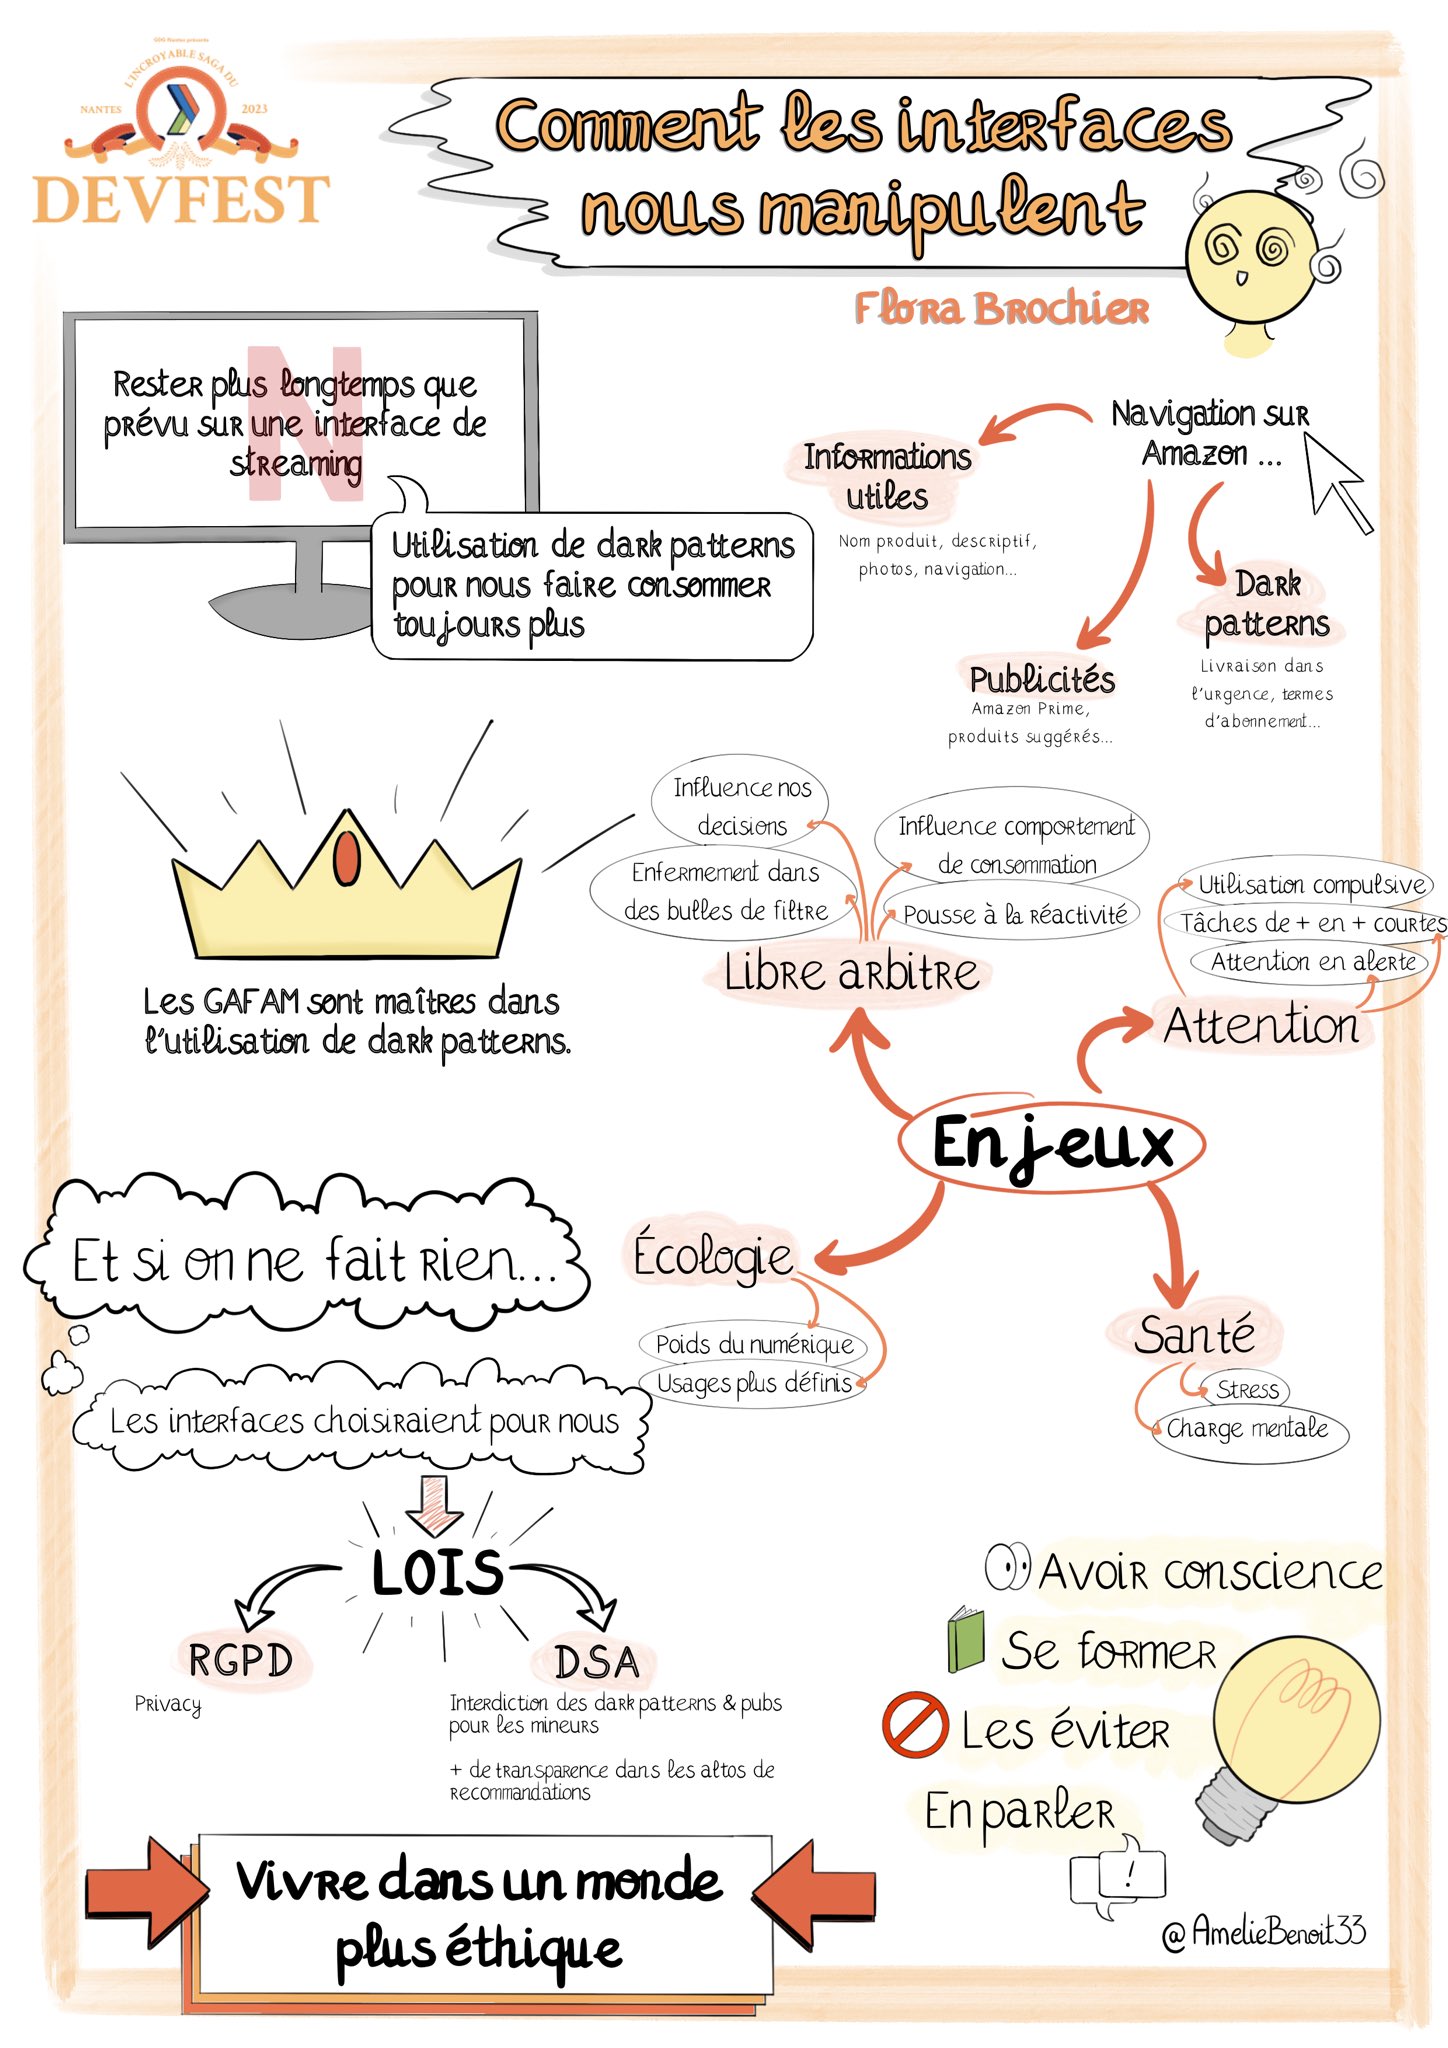 GDG Nantes présente
L'INCROYABLE SAGA DU
NANTES 2023
DEVFEST
Comment les interfaces
nous manipulent
Flora Brochier
N
Rester plus longtemps que
prévu sur une interface de
streaming
Utilisation de dark patterns
pour nous faire consommer
toujours plus
Navigation sur
Amazon ...
Informations
utiles
Nom produit, descriptif,
photos, navigation...
Dark
patterns
Livraison dans
l'urgence, termes
d'abonnement...
Publicités
Amazon Prime,
produits suggérés...
Les GAFAM sont maîtres dans
l'utilisation de dark patterns.
Influence nos
decisions
Enfermement dans
des bulles de filtre
Influence comportement
de consommation
Pousse à la réactivité
Libre arbitre
Utilisation compulsive
Tâches de + en + courtes
Attention en alerte
Attention
Enjeux
Écologie
Poids du numérique
Usages plus définis
Santé
Stress
Charge mentale
Et si on ne fait rien...
Les interfaces choisiraient pour nous
LOIS
RGPD
Privacy
DSA
Interdiction des dark patterns & pubs
pour les mineurs
+ de transparence dans les altos de
recommandations
Avoir conscience
Se former
Les éviter
En parler
!
Vivre dans un monde
plus éthique
@AmelieBenoit33